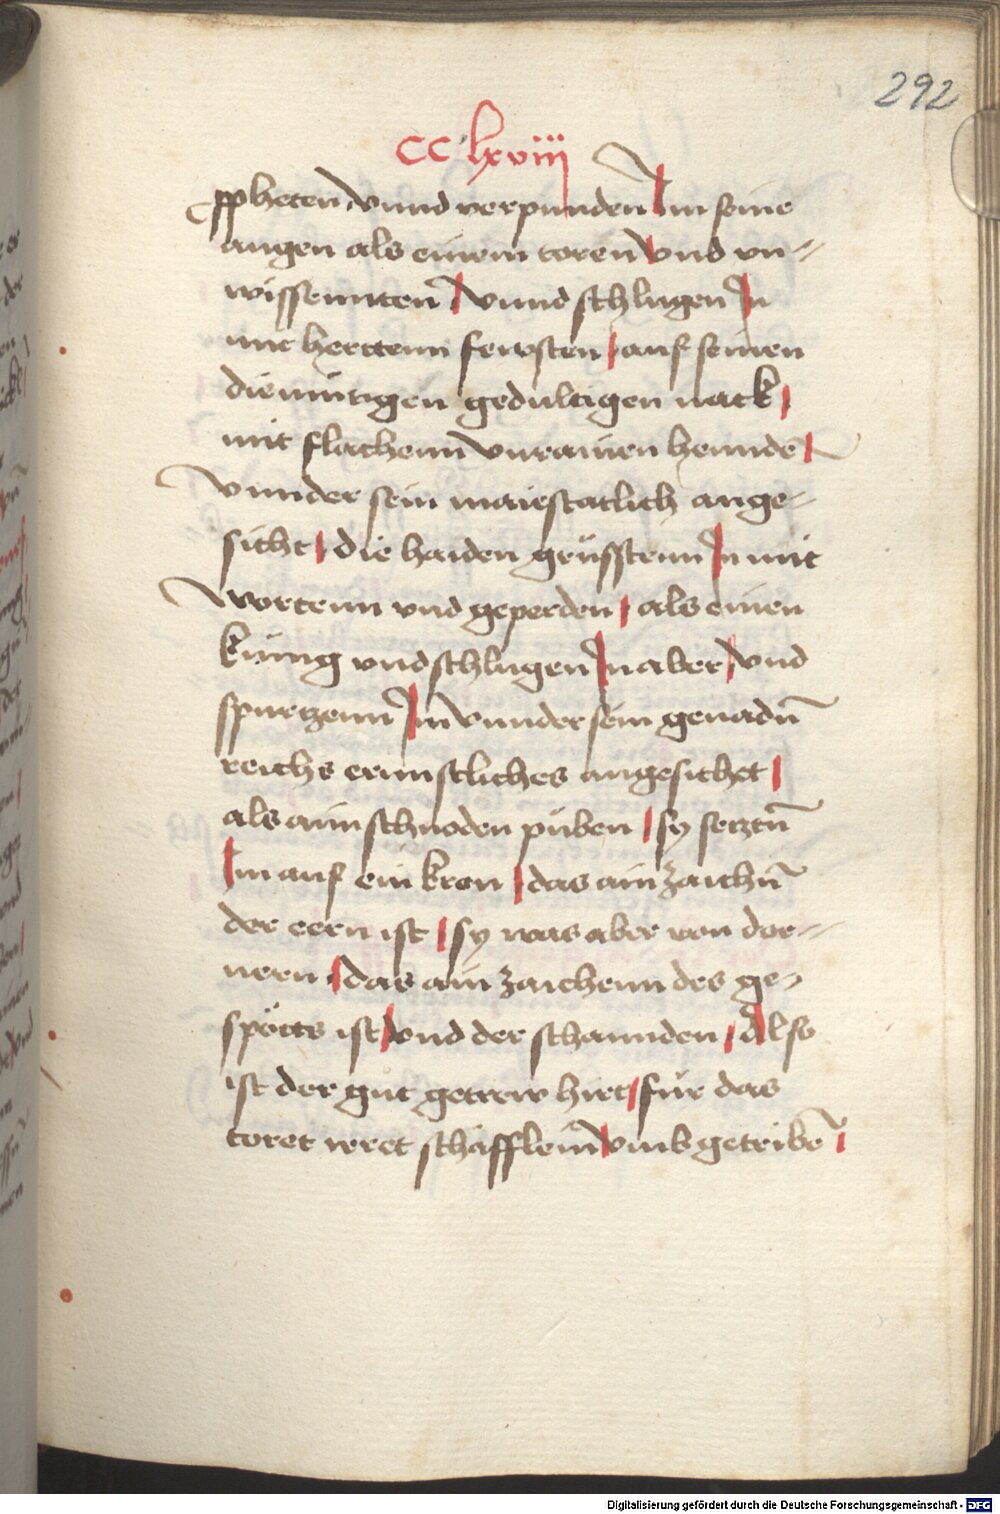 292
cclxviii
ppheten vnnd verpunden Im seine
augen als einem toren vnd vn-
wissennten̄ vnnd schlugen In
mit herttenn fewsten auf seinen
diemütigen gedultigen nack
mit flachenn vnrainen hennden̄
vnnder sein maiestatlich ange-
sicht die haiden grüssttenn In mit
wortenn vnd geperden als einen
künig vnd schlugen In aber vnd
spurtzenn Im vnnder sein genadn̄
reichs ernnstliches angesichet
als ainn schnoden püben sy setztn̄
Im auf ein kron das ain zaichn̄
der eern ist sy was aber von dor-
nern das ain zaichenn des ge-
spötts ist vnd der schannden Also
ist der gut getrew hirt für das
toret irret schäfflein vmb getribē
Digitalisierung gefördert durch die Deutsche Forschungsgemeinschaft - DFG